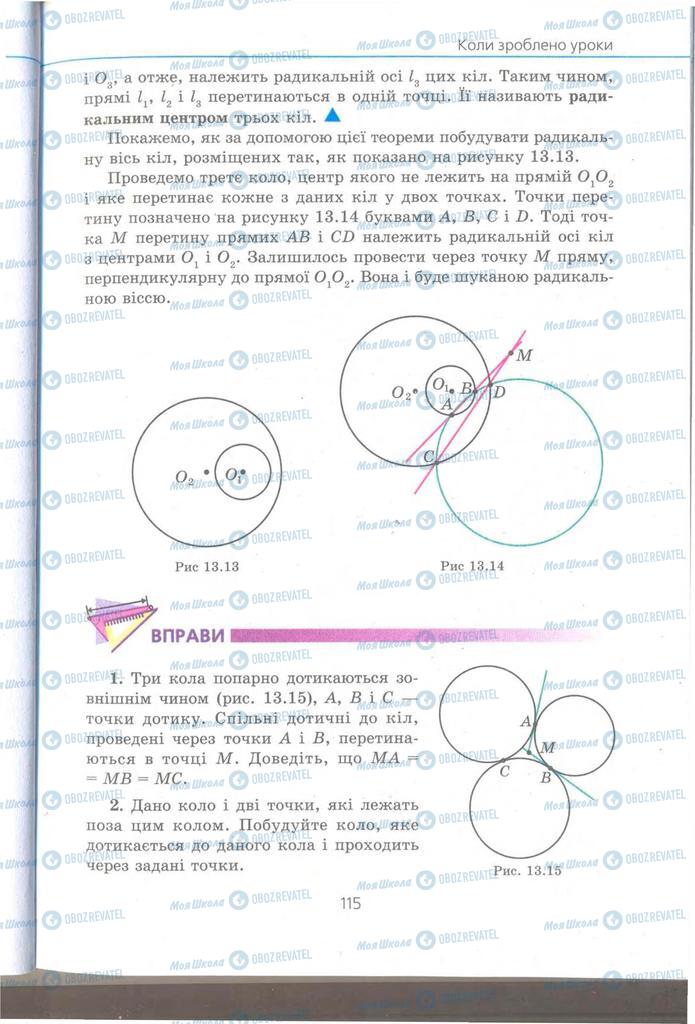 Коли зроблено уроки
і O₃, а отже, належить радикальній осі l₃ цих кіл. Таким чином,
прямі l₁, l₂ і l₃ перетинаються в одній точці. Її називають ради-
кальним центром трьох кіл. ▲
Покажемо, як за допомогою цієї теореми побудувати радикаль-
ну вісь кіл, розміщених так, як показано на рисунку 13.13.
Проведемо третє коло, центр якого не лежить на прямій O₁O₂
і яке перетинає кожне з даних кіл у двох точках. Точки пере-
тину позначено на рисунку 13.14 буквами A, B, C і D. Тоді точ-
ка M перетину прямих AB і CD належить радикальній осі кіл
з центрами O₁ і O₂. Залишилось провести через точку M пряму,
перпендикулярну до прямої O₁O₂. Вона і буде шуканою радикаль-
ною віссю.
O₂ O₁
Рис 13.13
O₂ O₁ A B D M C
Рис 13.14
ВПРАВИ
1. Три кола попарно дотикаються зо-
внішнім чином (рис. 13.15), A, B і C —
точки дотику. Спільні дотичні до кіл,
проведені через точки A і B, перетина-
ються в точці M. Доведіть, що MA =
= MB = MC.
2. Дано коло і дві точки, які лежать
поза цим колом. Побудуйте коло, яке
дотикається до даного кола і проходить
через задані точки.
A M C B
Рис. 13.15
115
МояШкола OBOZREVATEL